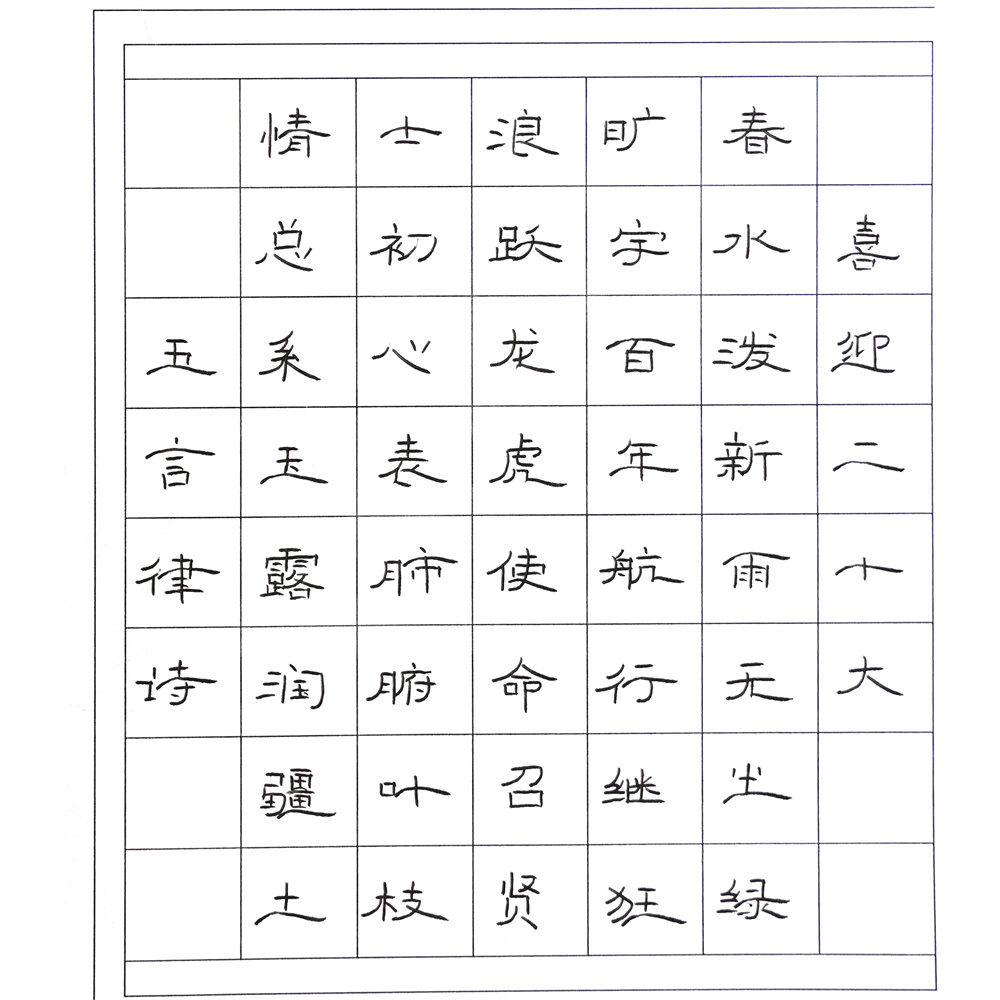 喜迎二十大
春水泼新雨无尘绿
旷宇百年航行继狂
浪跃龙虎使命召贤
士初心表肺腑叶枝
情总系玉露润疆土
五言律诗